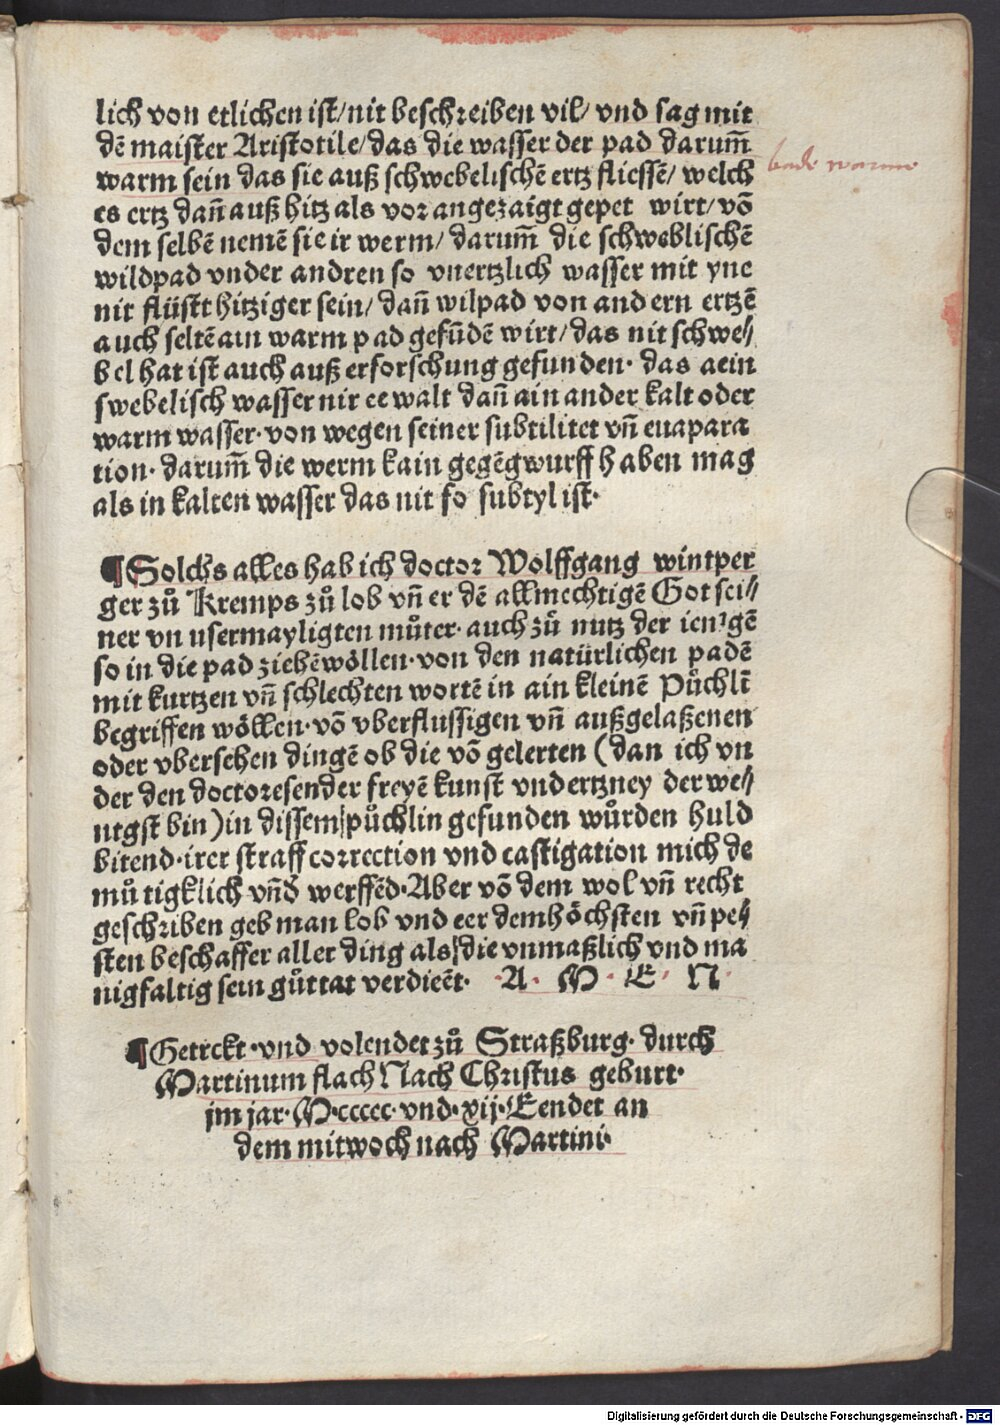 lich von etlichen ist/nit beschreiben vil/ vnd sag mit
dē maister Aristotile/das die wasser der pad darum̄
warm sein das sie auß schwebelischē ertz fliessē/ welch
bade warme
es ertz dan̄ auß hitz als vor angezaigt gepet wirt/ vō
dem selbē nemē sie ir werm/ darum̄ die schweblischē
wildpad vnder andren so vnertzlich wasser mit yne
nit flüstt hitziger sein/ dan̄ wilpad von and ern ertzē
auch seltē ain warm pad gefūdē wirt/ das nit schwe⸗
bel hat ist auch auß erforschung gefunden· das aein
swebelisch wasser nir ee walt dan̄ ain ander kalt oder
warm wasser· von wegen seiner subtilitet vn̄ euapara
tion· darum̄ die werm kain gegēgwurff haben mag
als in kalten wasser das nit so subtyl ist·
¶Solchs alles hab ich doctor Wolffgang wintper
ger zů Kremps zů lob vn̄ er dē allmechtigē Got sei⸗
ner vn vsermayligten můter· auch zů nutz der ienigē
so in die pad ziehē wöllen· von den natürlichen padē
mit kurtzen vn̄ schlechten wortē in ain kleinē Půchlī
begriffen wöllen· vō vberflussigen vn̄ außgelaßenen
oder vbersehen dingē ob die vō gelerten (dan ich vn
der den doctoresender freyē kunst vndertzney der we⸗
nigst bin) in dissem půchlin gefunden wůrden huld
bitend· irer straff correction vnd castigation mich de
mů tigklich vn̄d werffēd· Aber vō dem wol vn̄ recht
geschriben geb man lob vnd eer dem höchsten vn̄ pe⸗
sten beschaffer aller ding als die vnmaßlich vnd ma
nigfaltig sein gůttat verdieēt· A· M· E· N·
¶Getrckt· vnd volendet zů Straßburg· durch
Martinum flach Nach Christus geburt·
jm jar· M·ccccc· vnd· xij· Eendet an
dem mitwoch nach Martini·
Digitalisierung gefördert durch die Deutsche Forschungsgemeinschaft - DFG